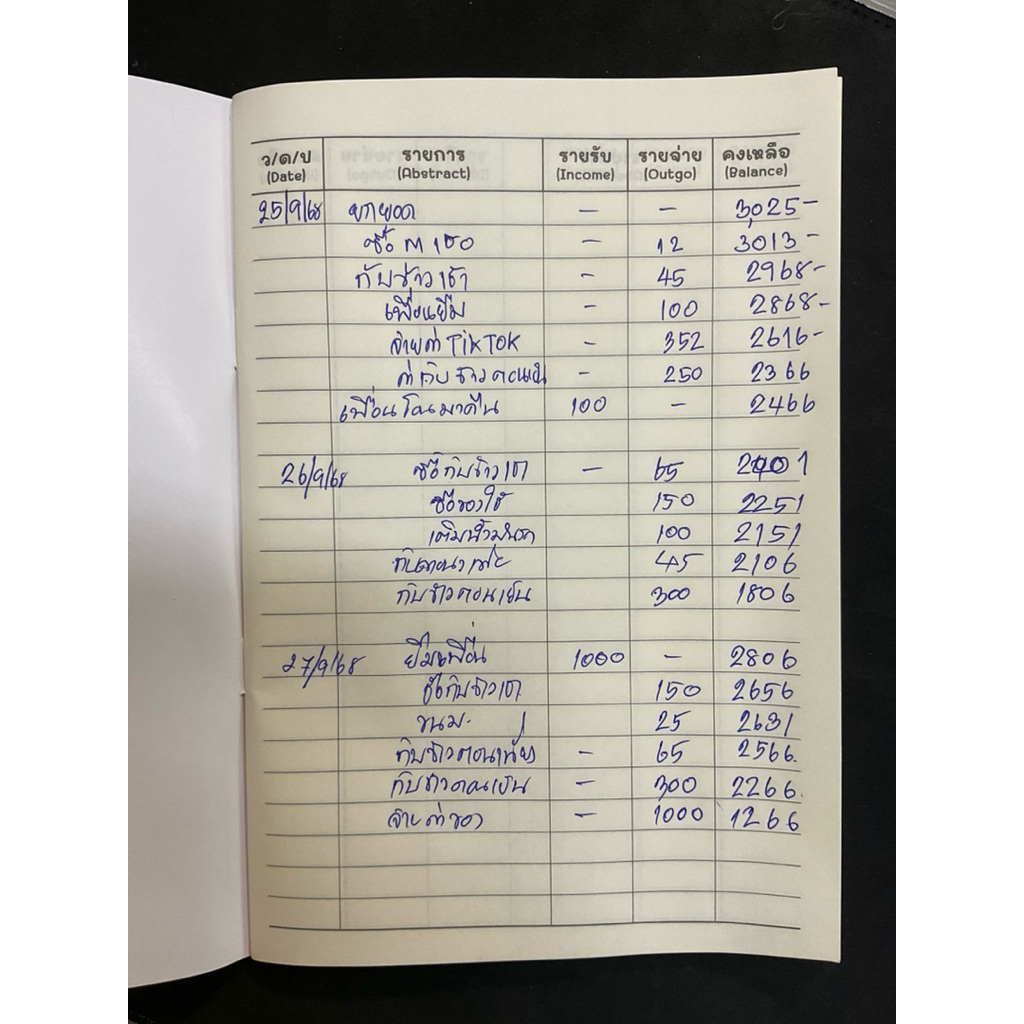 ว/ด/ป รายการ รายรับ รายจ่าย คงเหลือ
(Date) (Abstract) (Income) (Outgo) (Balance)
25/9/68 ยกยอด — — 3,025-
ซื้อ M 150 — 12 3013-
กับข้าวเช้า - 45 2968-
เพื่อนยืม - 100 2868-
จ่ายค่า TikTok - 352 2616-
ค่ากับข้าวตอนเย็น - 250 2366
เพื่อนโอนมาคืน 100 - 2466
26/9/68 ซื้อกับข้าวเช้า - 65 2401
ซื้อของใช้ 150 2251
เติมน้ำมันรถ 100 2151
45 2106
กับข้าวตอนเย็น 300 1806
27/9/68 ยืมเพื่อน 1000 - 2806
ซื้อกับข้าวเช้า 150 2656
ขนม 25 2631
กับข้าวตอนเที่ยง - 65 2566.
กับข้าวตอนเย็น - 300 2266.
จ่ายค่าของ - 1000 1266